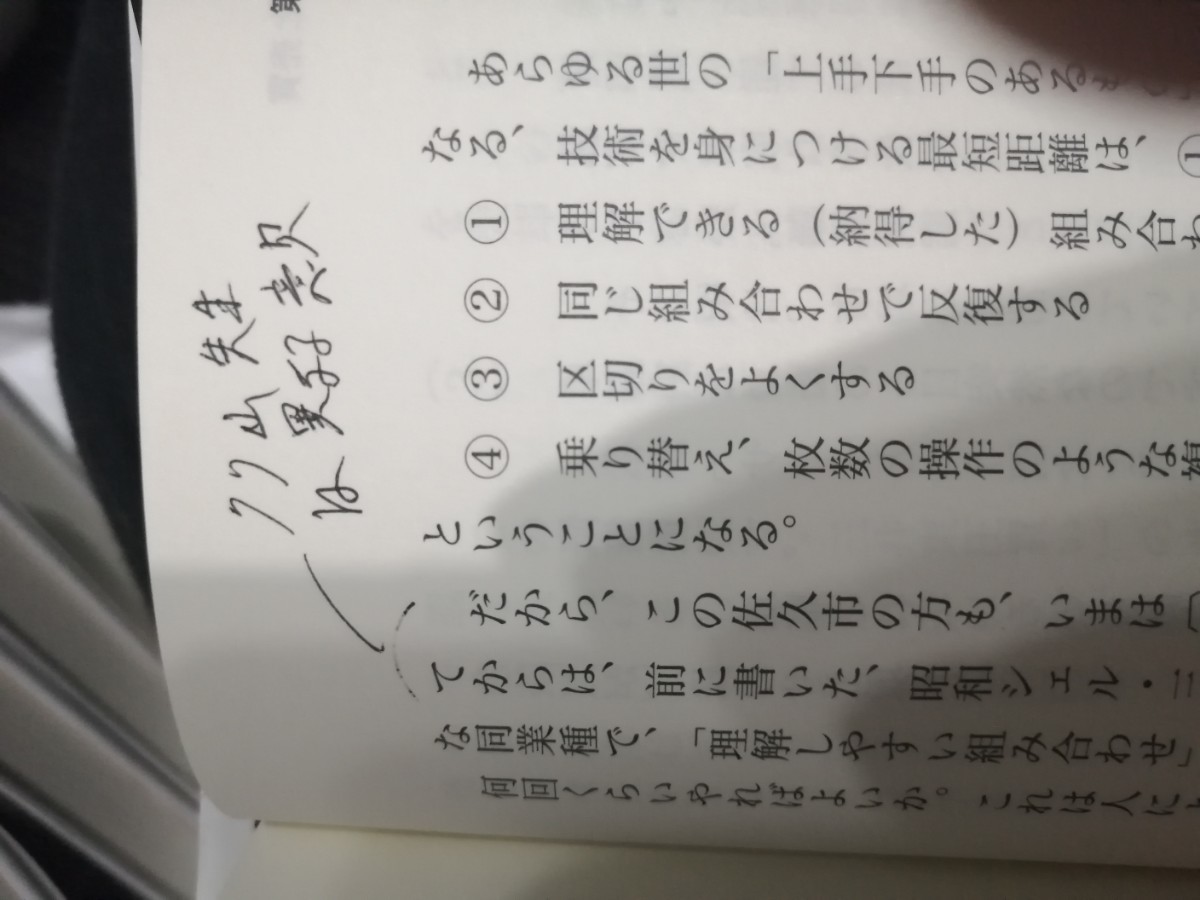 第
クリ山 先生
は 意見
あらゆる世の「上手下手のある
なる、技術を身につける最短距離は、①
① 理解できる（納得した）組み合わ
② 同じ組み合わせで反復する
③ 区切りをよくする
④ 乗り替え、枚数の操作のような複
ということになる。
だから、この佐久市の方も、いまは
てからは、前に書いた、昭和シェル・三
な同業種で、「理解しやすい組み合わせ」
何回くらいやればよいか。これは人によ